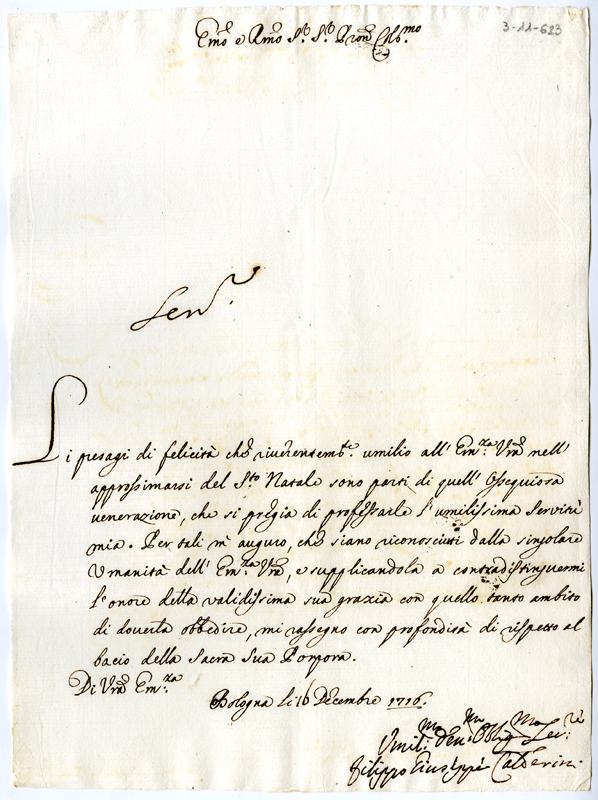 3-11-623
Em.o e R.mo S.r S.r P.ron Col.mo
Li presagi di felicità che riverentem.te umilio all' Em.za V.ra nell'
approssimarsi del S.to Natale sono parti di quell' Ossequiosa
venerazione, che si pregia di professarle l'umilissima servitù
mia. Per tali m' auguro, che siano riconosciuti dalla singolare
Umanità dell' Em.za V.ra, e supplicandola a contradistinguermi
l'onore della validissima sua grazia con quello tanto ambito
di doverla obbedire, mi rassegno con profondità di rispetto al
bacio della Sacra Sua Porpora.
Di V.ra Em.za
Bologna li 16 Decembre 1716.
Umil.mo Dev.mo Obblig.mo Ser.re
Filippo Giuseppe Calderini